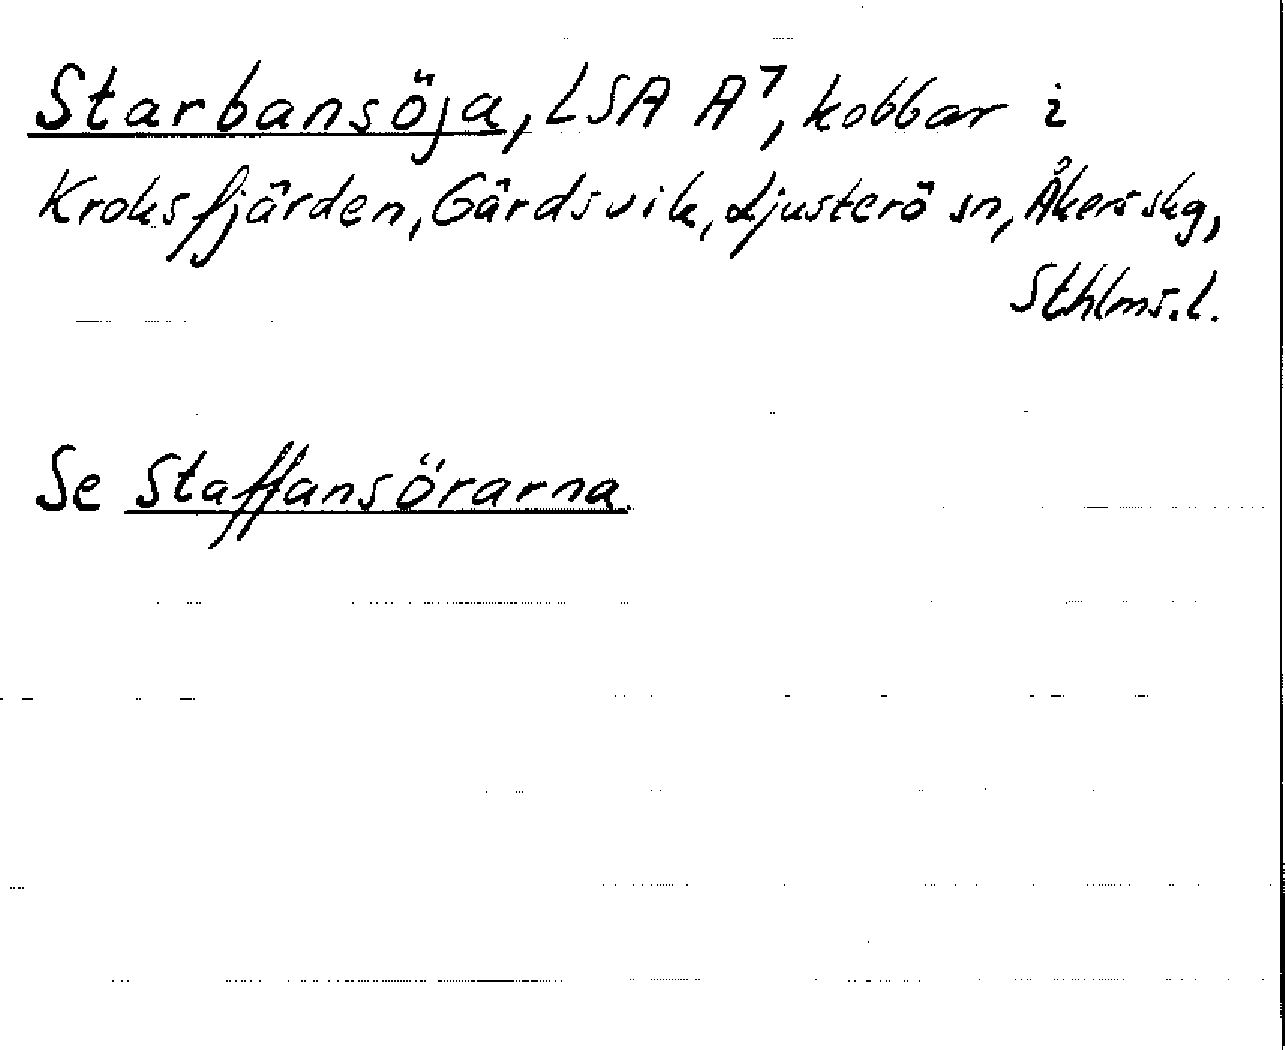 Starbansöja, LSA A7, kobbar i
Kroksfjärden, Gärdsvik, Ljusterö sn, Åkers skg,
Sthlms.l.
Se Staffansörarna.